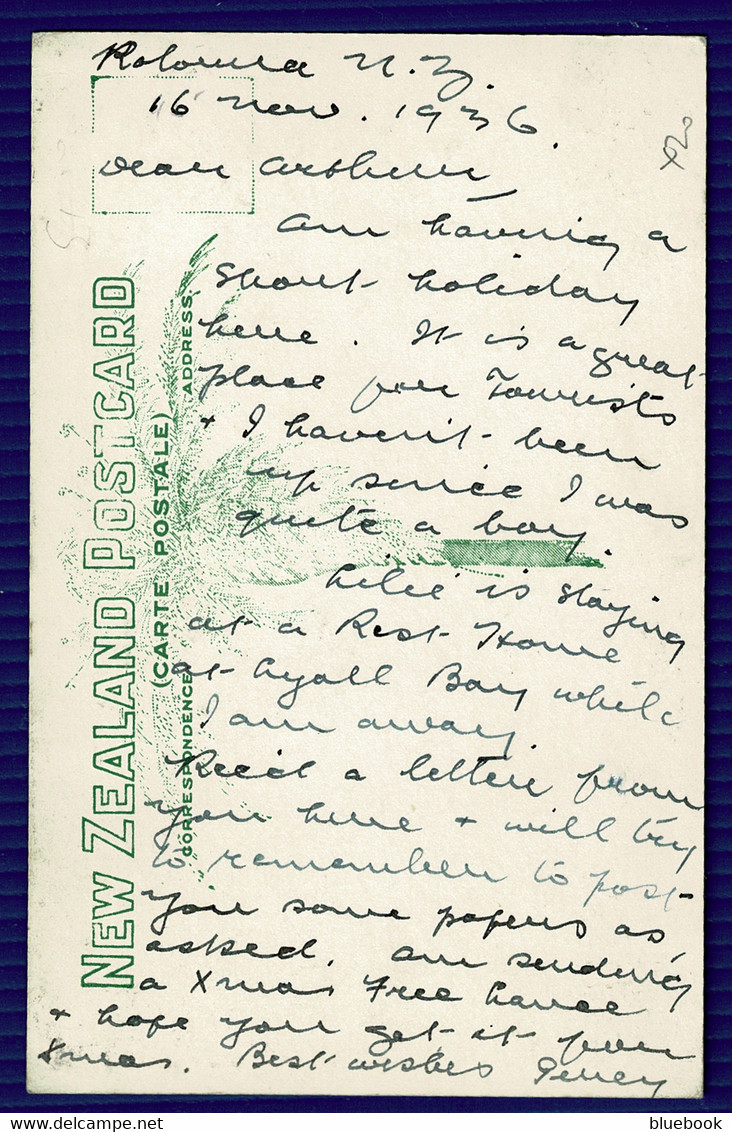 Rotorua N.Z.
16 Nov. 1936.
Dear Arthur,
Am having a
short holiday
here. It is a great
place for Tourists
+ I haven't been
up since I was
quite a boy.
Lilie is staying
at a Rest Home
at Lyall Bay while
I am away
Rec'd a letter from
you here + will try
to remember to post
you some papers as
asked. Am sending
a Xmas Free Lance
+ hope you get it for
Xmas. Best wishes Percy
NEW ZEALAND POSTCARD
(CARTE POSTALE)
CORRESPONDENCE
ADDRESS
bluebook